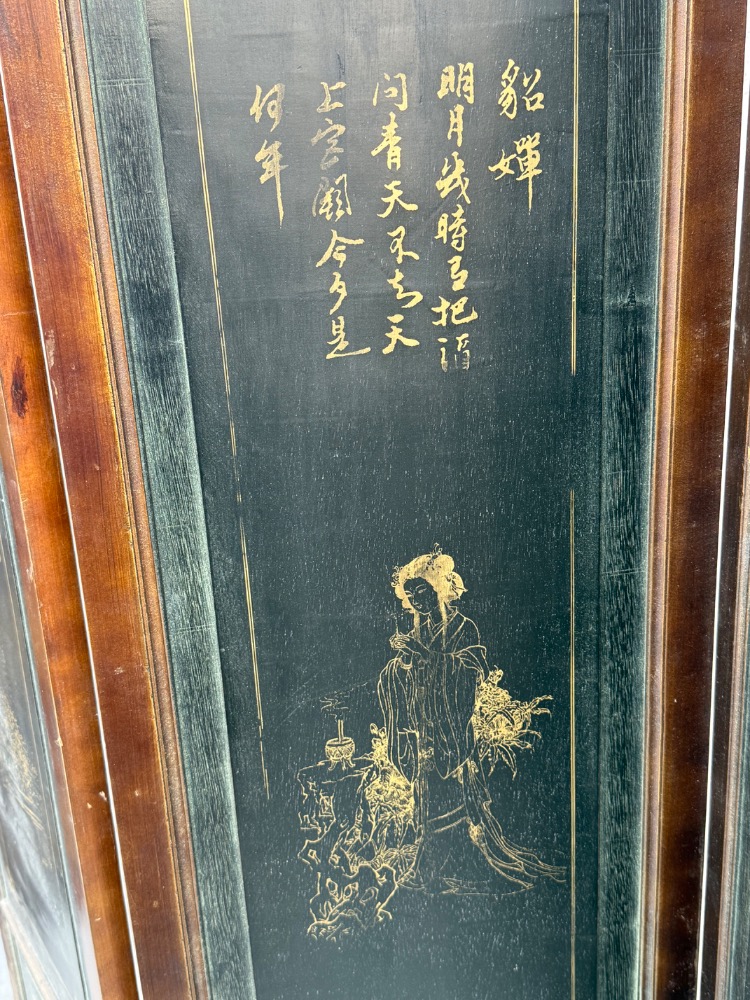 貂嬋
明月幾時有把酒
问青天不知天
上宮闕今夕是
何年